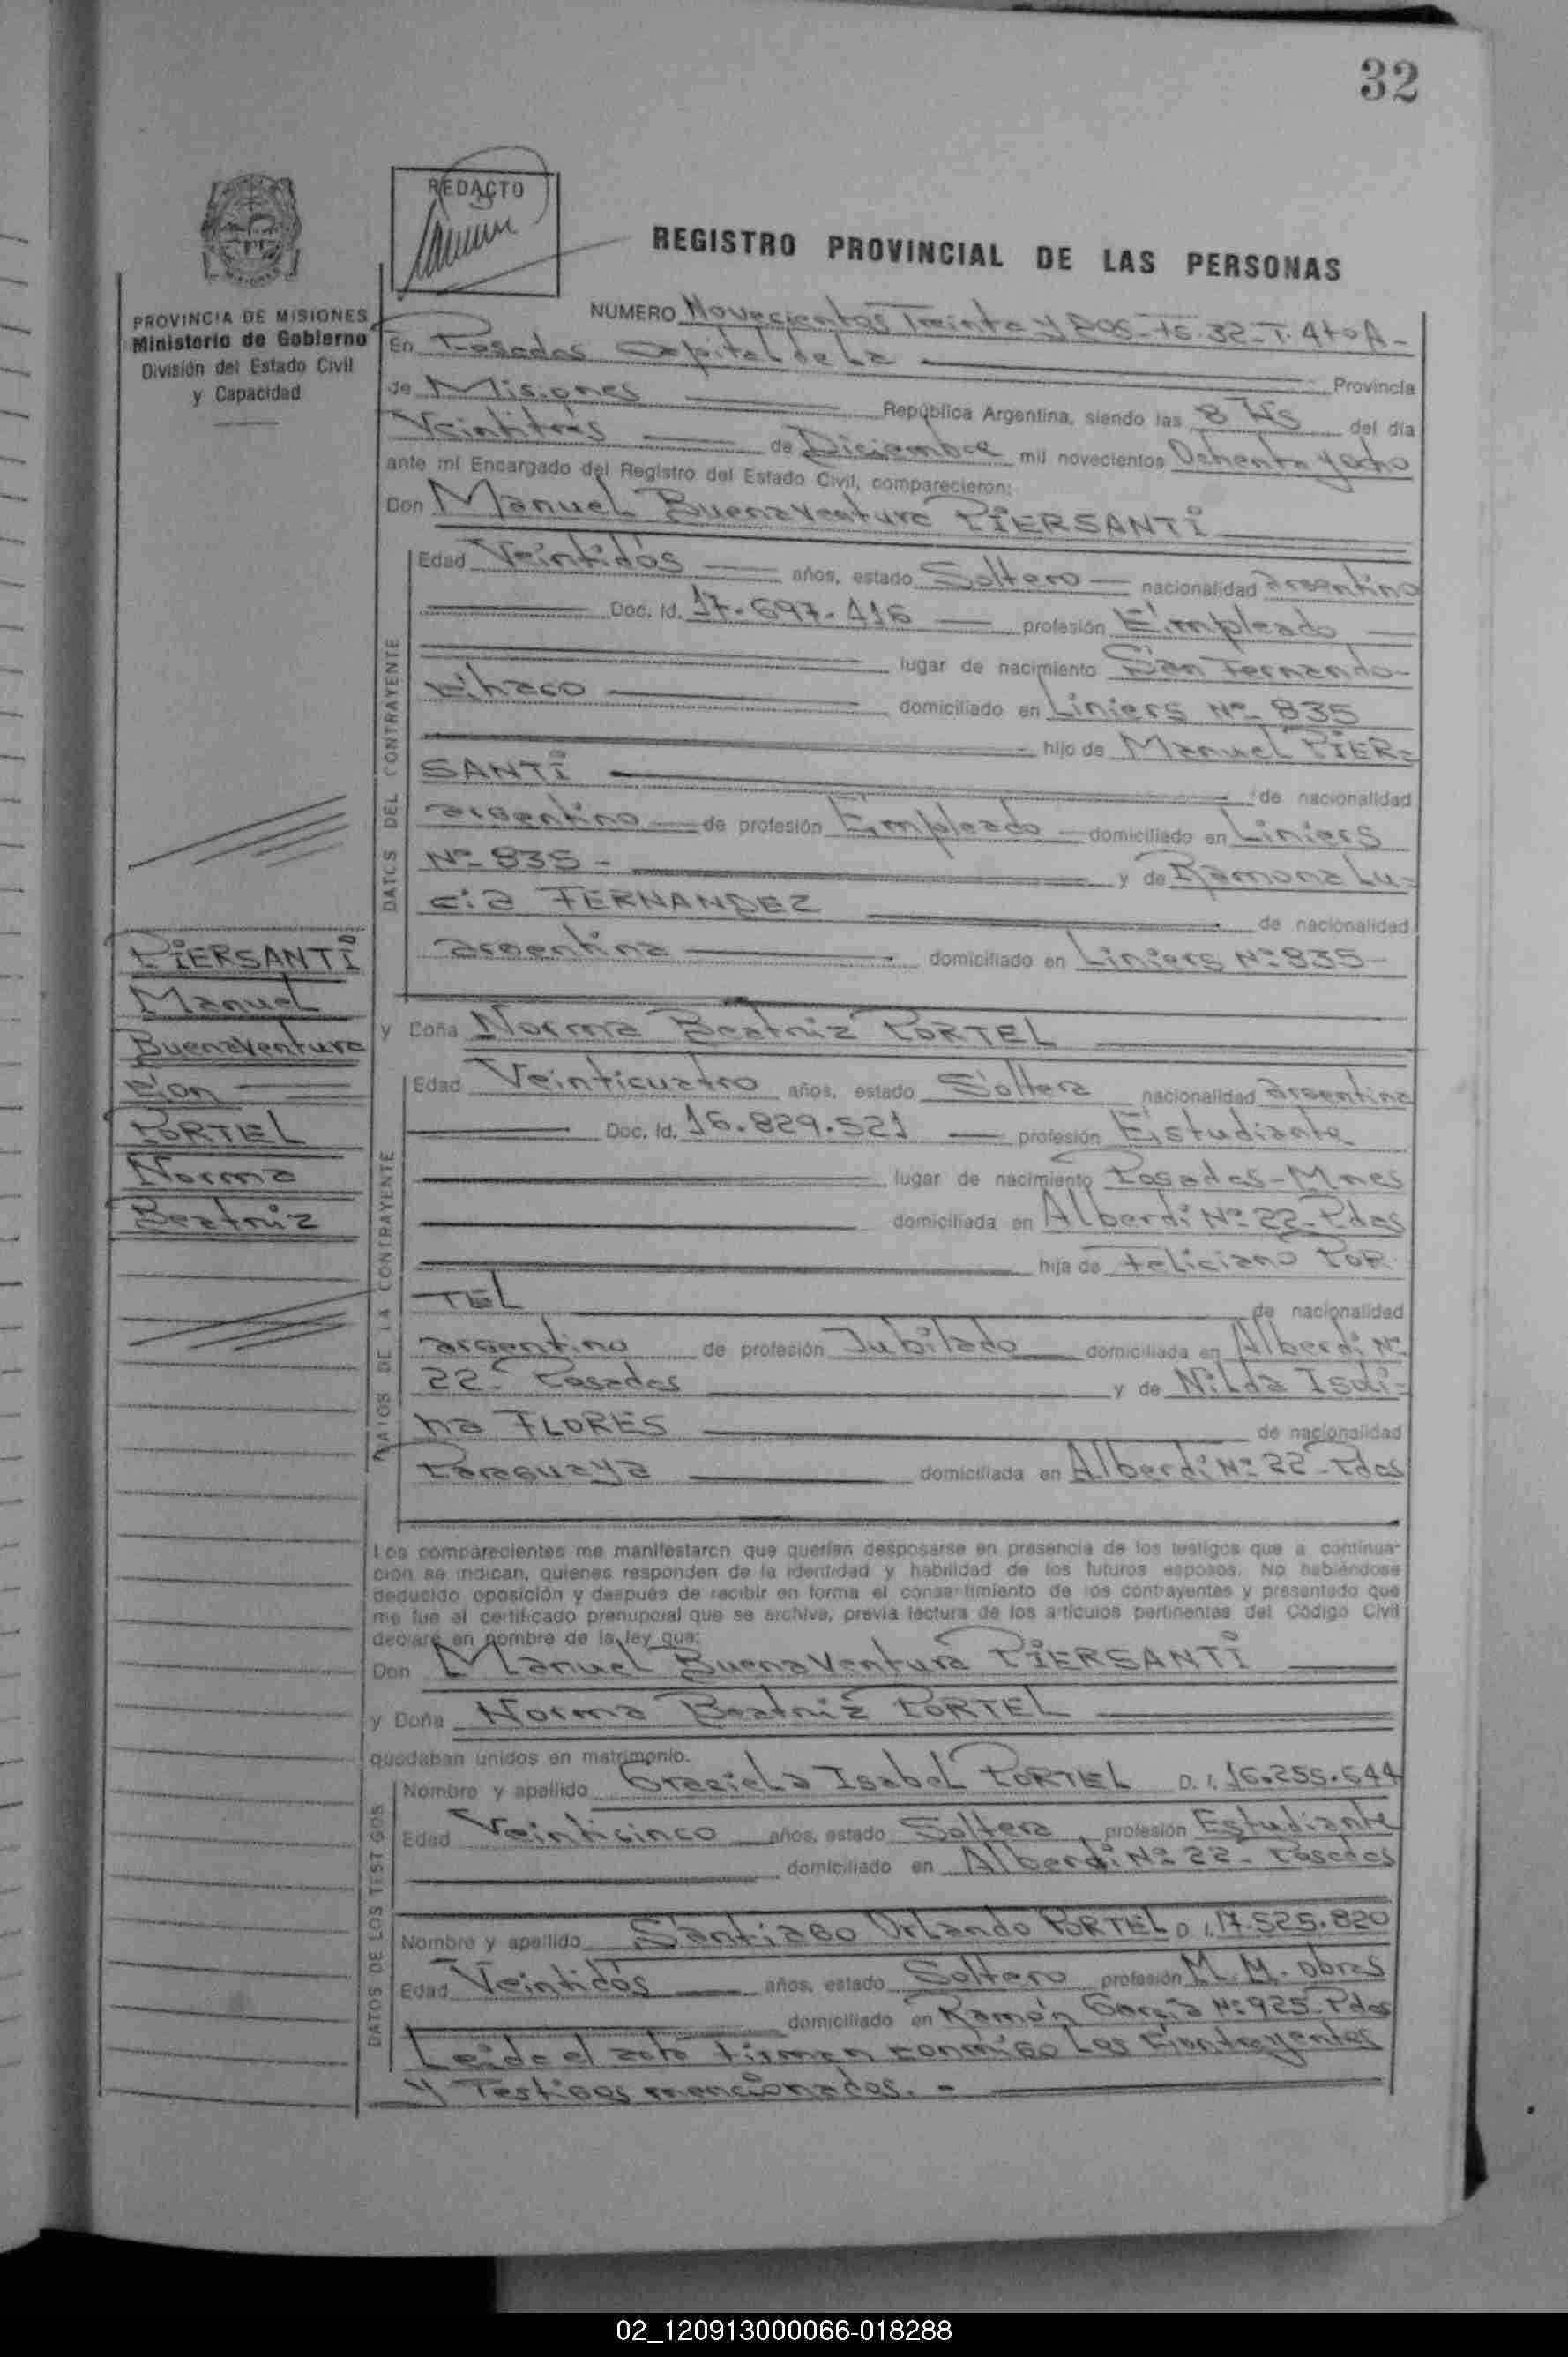 32
REDACTO
REGISTRO PROVINCIAL DE LAS PERSONAS
PROVINCIA DE MISIONES
Ministerio de Gobierno
División del Estado Civil
y Capacidad
NUMERO Novecientos Treinta y Dos - Fs. 32 - T. 4to A -
En Posadas Capital de La Provincia
de Misiones República Argentina, siendo las 8 Hs del día
Veintitrés de Diciembre mil novecientos Ochenta y ocho
ante mí Encargado del Registro del Estado Civil, comparecieron:
Don Manuel Buenaventura PIERSANTI
DATOS DEL CONTRAYENTE
Edad Veintidós años, estado Soltero nacionalidad argentino
Doc. Id. 17.697.416 profesión Empleado
lugar de nacimiento San Fernando-
Chaco domiciliado en Liniers Nº 835
hijo de Manuel PIER=
SANTI de nacionalidad
argentino de profesión Empleado domiciliado en Liniers
Nº 835 - y de Ramona Lu=
cia FERNANDEZ de nacionalidad
argentina domiciliado en Liniers Nº 835-
PIERSANTI
Manuel
Buenaventura
Con
PORTEL
Norma
Beatriz
y Doña Norma Beatriz PORTEL
DATOS DE LA CONTRAYENTE
Edad Veinticuatro años, estado Soltera nacionalidad argentina
Doc. Id. 16.829.521 profesión Estudiante
lugar de nacimiento Posadas-Mnes
domiciliada en Alberdi Nº 22-Pdas
hija de Feliciano POR
TEL de nacionalidad
argentino de profesión Jubilado domiciliada en Alberdi Nº
22- Posadas y de Nilda Isoli=
na FLORES de nacionalidad
Paraguaya domiciliada en Alberdi Nº 22-Pdas
Los comparecientes me manifestaron que querían desposarse en presencia de los testigos que a continua-
ción se indican, quienes responden de la identidad y habilidad de los futuros esposos. No habiéndose
deducido oposición y después de recibir en forma el consentimiento de los contrayentes y presentado que
me fue el certificado prenupcial que se archiva, previa lectura de los artículos pertinentes del Código Civil
declaré en nombre de la ley que:
Don Manuel Buenaventura PIERSANTI
y Doña Norma Beatriz PORTEL
quedaban unidos en matrimonio.
DATOS DE LOS TESTIGOS
Nombre y apellido Graciela Isabel PORTEL D. I. 16.255.644
Edad Veinticinco años, estado Soltera profesión Estudiante
domiciliado en Alberdi Nº 22 - Posadas
Nombre y apellido Santiago Orlando PORTEL D. I. 17.525.820
Edad Veintidós años, estado Soltero profesión M.M. obras
domiciliado en Ramón García Nº 925-Pdas
Leida el acta Firman conmigo Los Contrayentes
y Testigos mencionados. -
02_120913000066-018288